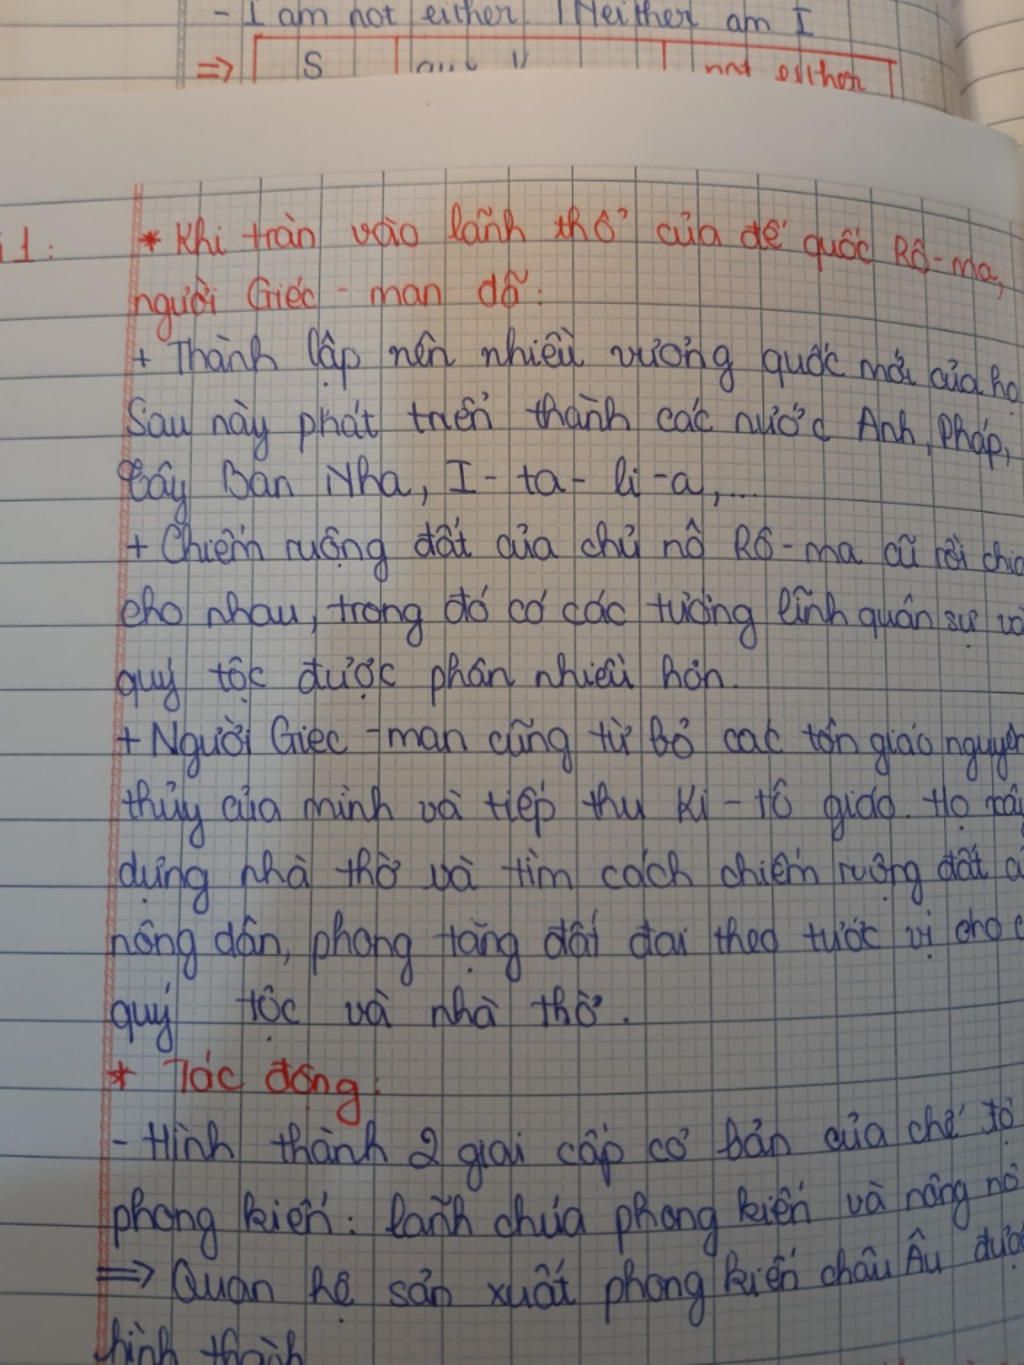 - I am not either / Neither am I
=> S | aux V | not either
1: * Khi tràn vào lãnh thổ của đế quốc Rô-ma,
người Giéc-man đã:
+ Thành lập nên nhiều vương quốc mới của họ
Sau này phát triển thành các nước Anh, Pháp,
Tây Ban Nha, I-ta-li-a,...
+ Chiếm ruộng đất của chủ nô Rô-ma cũ rồi chia
cho nhau, trong đó có các tướng lĩnh quân sự và
quý tộc được phân nhiều hơn.
+ Người Giéc-man cũng từ bỏ các tôn giáo nguyên
thủy của mình và tiếp thu Ki-tô giáo. Họ xây
dựng nhà thờ và tìm cách chiếm ruộng đất
nông dân, phong tặng đất đai theo tước vị cho
quý tộc và nhà thờ.
* Tác động:
- Hình thành 2 giai cấp cơ bản của chế độ
phong kiến: lãnh chúa phong kiến và nông nô
=> Quan hệ sản xuất phong kiến châu Âu được
hình thành